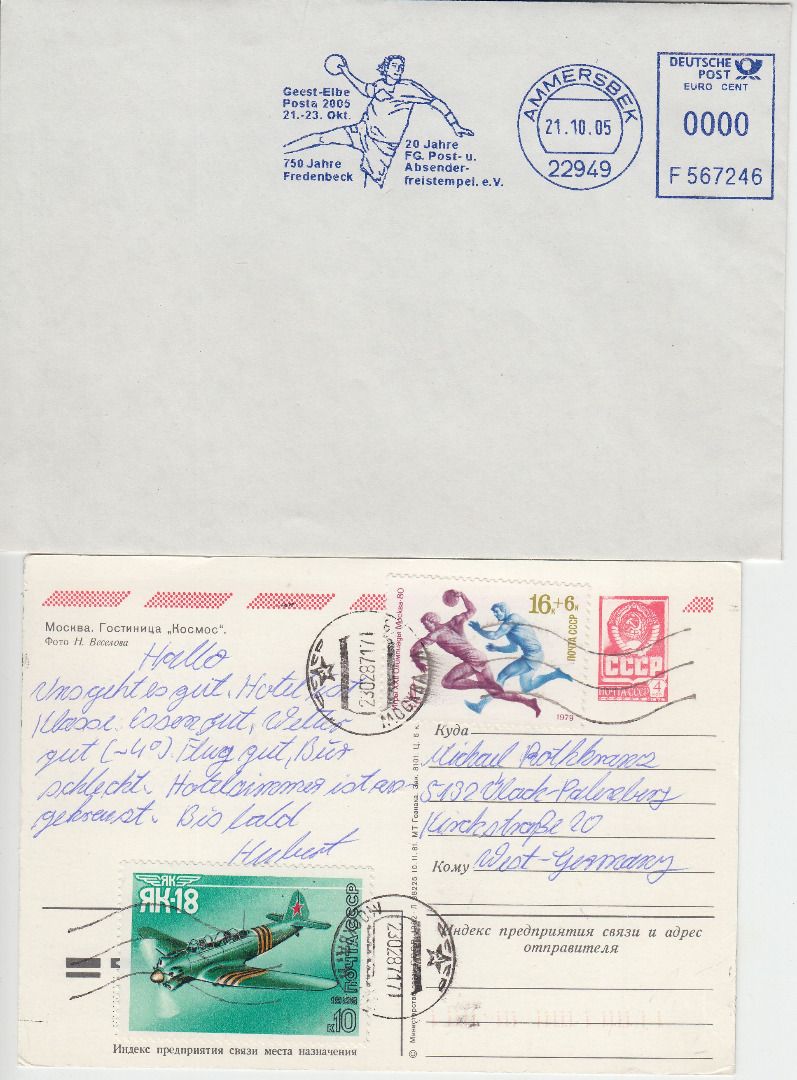 Geest-Elbe
Posta 2005
21.-23. Okt.
750 Jahre
Fredenbeck
20 Jahre
FG. Post- u.
Absender-
freistempel. e.V.
AMMERSBEK
21.10.05
22949
DEUTSCHE
POST
EURO CENT
0000
F 567246
Москва. Гостиница „Космос".
Фото Н. Веселова
Hallo
Uns geht es gut. Hotel ist
Klasse. Essen gut, Wetter
gut (-4°). Flug gut, Bier
schlecht. Hotelzimmer ist an-
gekreuzt. Bis bald
Hubert
Игры XXII Олимпиады Москва-80
16к+6к
ПОЧТА СССР
1979
230287171
МОСКВА
СССР
ПОЧТА СССР 4
Куда
Michael Rothkranz
5132 Übach-Palenberg
Kirchstraße 20
Кому West-Germany
Индекс предприятия связи и адрес
отправителя
ЯК
ЯК-18
ПОЧТА СССР
к10
230287171
Индекс предприятия связи места назначения